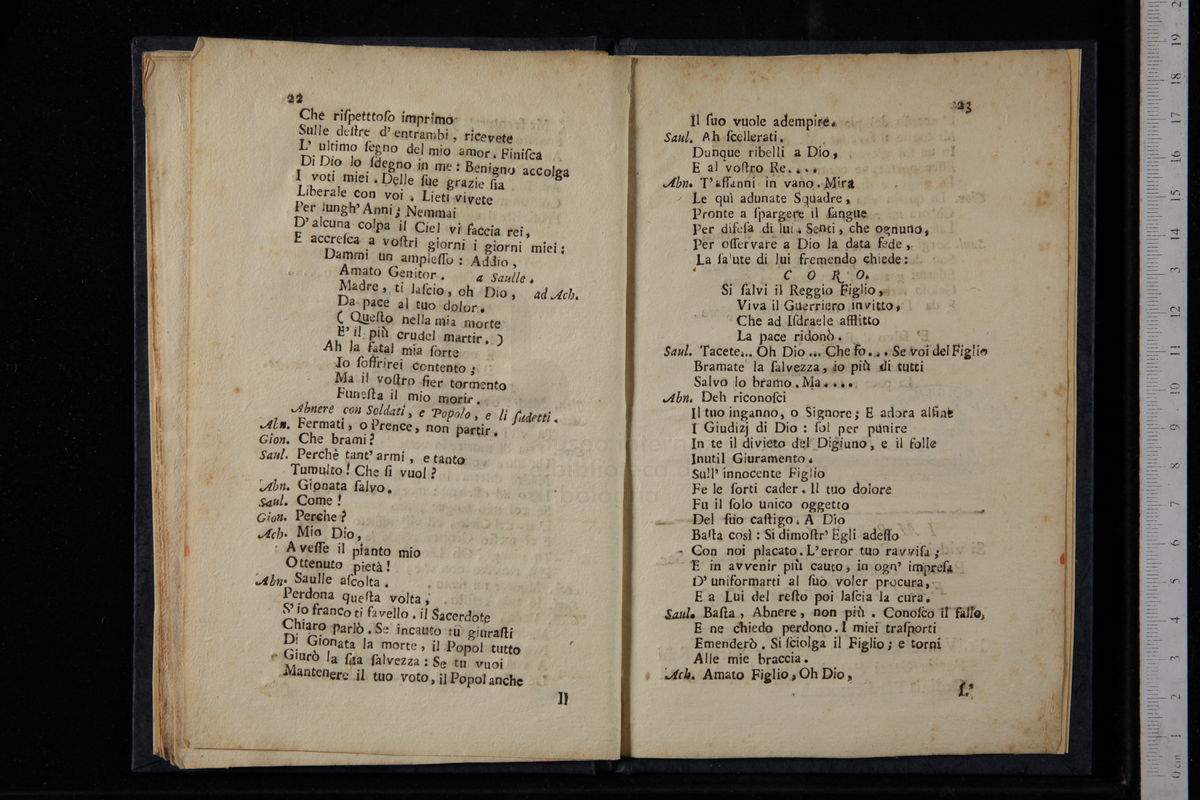 22
Che riſpetttoſo imprimo
Sulle deſtre d' entrambi, ricevete
L' ultimo ſegno del mio amor. Finiſca
Di Dio lo ſdegno in me: Benigno accolga
I voti miei. Delle ſue grazie ſia
Liberale con voi. Lieti vivete
Per lungh' Anni; Nemmai
D' alcuna colpa il Ciel vi faccia rei,
E accreſca a voſtri giorni i giorni miei:
Dammi un ampleſſo: Addio,
Amato Genitor. a Saulle.
Madre, ti laſcio, oh Dio, ad Ach.
Da pace al tuo dolor.
( Queſto nella mia morte
E' il più crudel martir. )
Ah la fatal mia ſorte
Io ſoffrirei contento;
Ma il voſtro fier tormento
Funeſta il mio morir.
Abnere con Soldati, e Popolo, e li ſudetti.
Abn. Fermati, o Prence, non partir.
Gion. Che brami?
Saul. Perchè tant' armi, e tanto
Tumulto! Che ſi vuol?
Abn. Gionata ſalvo.
Saul. Come!
Gion. Perche?
Ach. Mio Dio,
Aveſſe il pianto mio
Ottenuto pietà!
Abn. Saulle aſcolta.
Perdona queſta volta,
S' io franco ti favello. il Sacerdote
Chiaro parlò. Se incauto tu giuraſti
Di Gionata la morte, il Popol tutto
Giurò la ſua ſalvezza: Se tu vuoi
Mantenere il tuo voto, il Popol anche
Il
23
Il ſuo vuole adempire.
Saul. Ah ſcellerati.
Dunque ribelli a Dio,
E al voſtro Re....
Abn. T' affanni in vano. Mira
Le quì adunate Squadre,
Pronte a ſpargere il ſangue
Per difeſa di lui. Senti, che ognuno,
Per oſſervare a Dio la data fede,
La ſalute di lui fremendo chiede:
C O R O.
Si ſalvi il Reggio Figlio,
Viva il Guerriero invitto,
Che ad Iſdraele afflitto
La pace ridonò.
Saul. Tacete... Oh Dio... Che fo... Se voi del Figlio
Bramate la ſalvezza, io più di tutti
Salvo lo bramo. Ma....
Abn. Deh riconoſci
Il tuo inganno, o Signore; E adora alfine
I Giudizj di Dio: ſol per punire
In te il divieto del Digiuno, e il folle
Inutil Giuramento.
Sull' innocente Figlio
Fe le ſorti cader. Il tuo dolore
Fu il ſolo unico oggetto
Del ſuo caſtigo. A Dio
Baſta così: Si dimoſtr' Egli adeſſo
Con noi placato. L' error tuo ravviſa;
E in avvenir più cauto, in ogn' impreſa
D' uniformarti al ſuo voler procura,
E a Lui del reſto poi laſcia la cura.
Saul. Baſta, Abnere, non più. Conoſco il fallo,
E ne chiedo perdono. I miei traſporti
Emenderò. Si ſciolga il Figlio; e torni
Alle mie braccia.
Ach. Amato Figlio, Oh Dio,